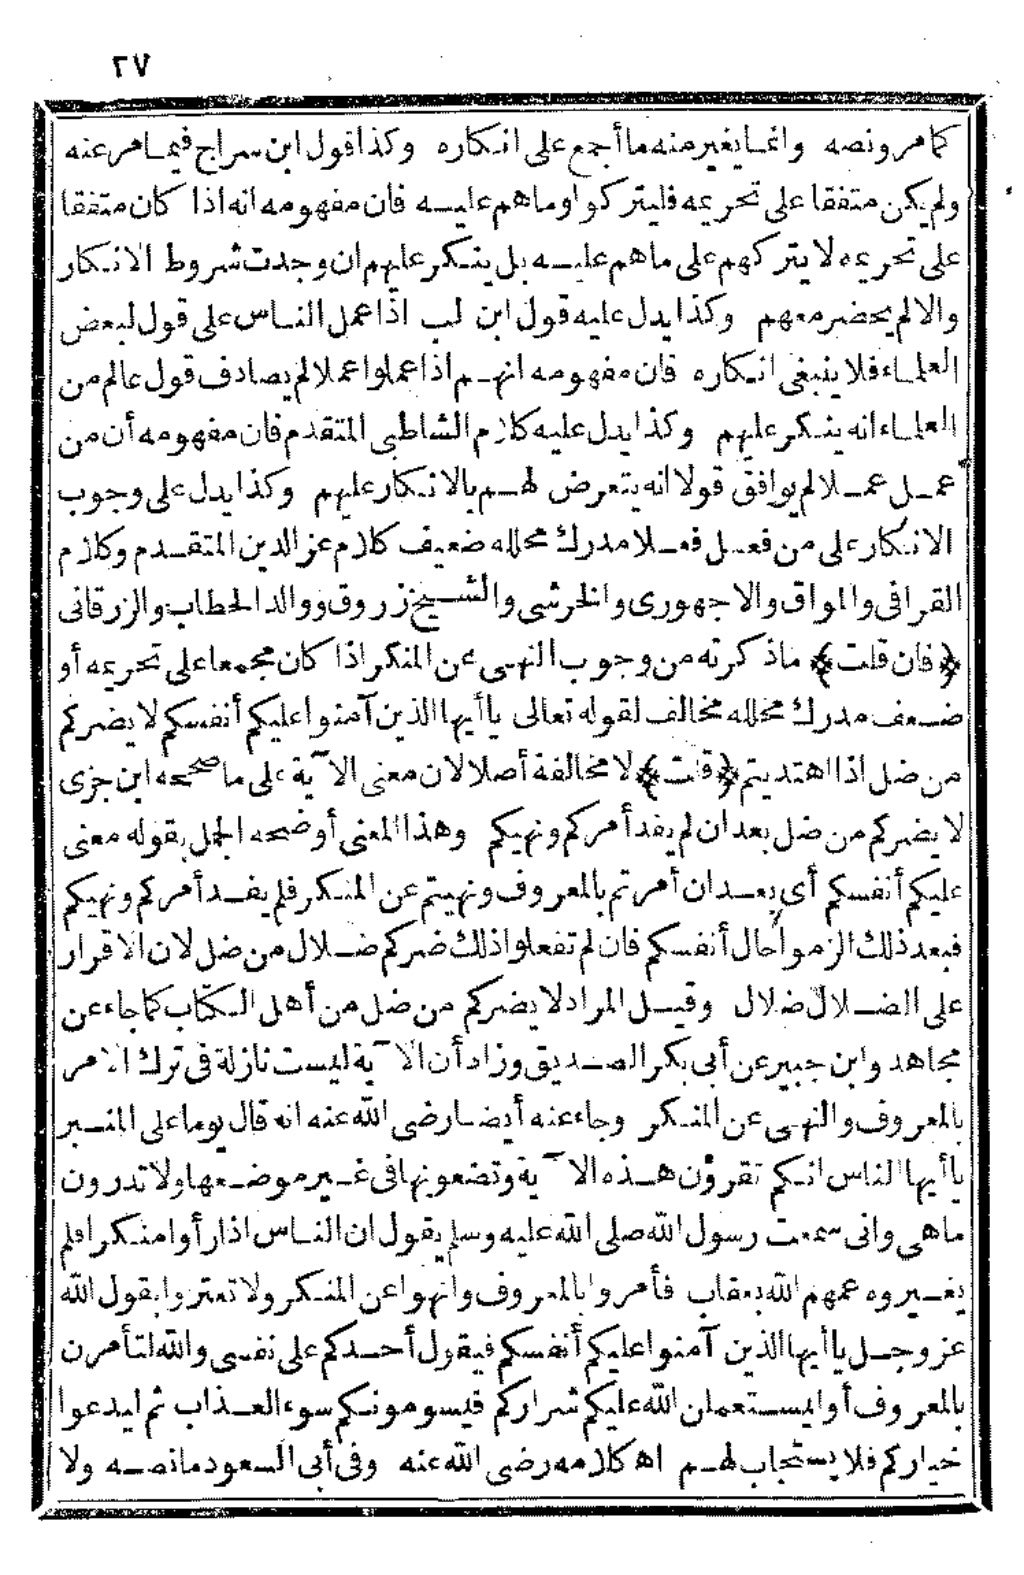 ٢٧
كما مر ونصه وانما يغير منه ما أجمع على انكاره وكذا قول ابن سراج فيما مر عنه
ولم يكن متفقا على تحريمه فليتركوا وما هم عليه فان مفهومه انه اذا كان متفقا
على تحريمه لا يتركهم على ما هم عليه بل ينكر عليهم ان وجدت شروط الانكار
والا لم يحضر معهم وكذا يدل عليه قول ابن لب اذا عمل الناس على قول لبعض
العلماء فلا ينبغى انكاره فان مفهومه انهم اذا عملوا عملا لم يصادف قول عالم من
العلماء انه ينكر عليهم وكذا يدل عليه كلام الشاطبى المتقدم فان مفهومه أن من
عمل عملا لم يوافق قولا انه يتعرض لهم بالانكار عليهم وكذا يدل على وجوب
الانكار على من فعل فعلا مدرك محلله ضعيف كلام عز الدين المتقدم وكلام
القرافى والمواق والاجهورى والخرشى والشيخ زروق ووالد الحطاب والزرقانى
﴿فان قلت﴾ ما ذكرته من وجوب النهى عن المنكر اذا كان مجمعا على تحريمه أو
ضعف مدرك محلله مخالف لقوله تعالى يا أيها الذين آمنوا عليكم أنفسكم لا يضركم
من ضل اذا اهتديتم ﴿قلت﴾ لا مخالفة أصلا لان معنى الآية على ما صححه ابن جزى
لا يضركم من ضل بعد ان لم يفد أمركم ونهيكم وهذا المعنى أوضحه الجمل بقوله معنى
عليكم أنفسكم أى بعد ان أمرتم بالمعروف ونهيتم عن المنكر فلم يفد أمركم ونهيكم
فبعد ذلك الزموا حال أنفسكم فان لم تفعلوا ذلك ضركم ضلال من ضل لان الاقرار
على الضلال ضلال وقيل المراد لا يضركم من ضل من أهل الكتاب كما جاء عن
مجاهد وابن جبير عن أبى بكر الصديق وزاد أن الآية ليست نازلة فى ترك الامر
بالمعروف والنهى عن المنكر وجاء عنه أيضا رضى الله عنه انه قال يوما على المنبر
يا أيها الناس انكم تقرؤن هذه الآية وتضعونها فى غير موضعها ولا تدرون
ما هى وانى سمعت رسول الله صلى الله عليه وسلم يقول ان الناس اذا رأوا منكرا فلم
يغيروه عمهم الله بعقاب فأمروا بالمعروف وانهوا عن المنكر ولا تعتروا بقول الله
عز وجل يا أيها الذين آمنوا عليكم أنفسكم فيقول أحدكم على نفسى والله لتأمرن
بالمعروف أو ليستعملن الله عليكم شراركم فيسومونكم سوء العذاب ثم ليدعوا
خياركم فلا يستجاب لهم اه كلامه رضى الله عنه وفى أبى السعود ما نصه ولا